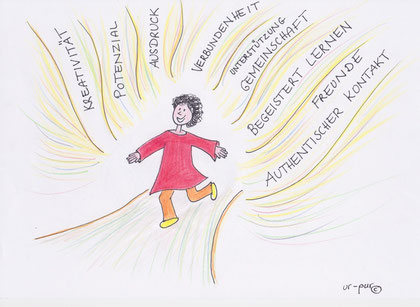 KREATIVITÄT
POTENZIAL
AUSDRUCK
VERBUNDENHEIT
UNTERSTÜTZUNG
GEMEINSCHAFT
BEGEISTERT LERNEN
FREUNDE
AUTHENTISCHER KONTAKT
ur-pur©